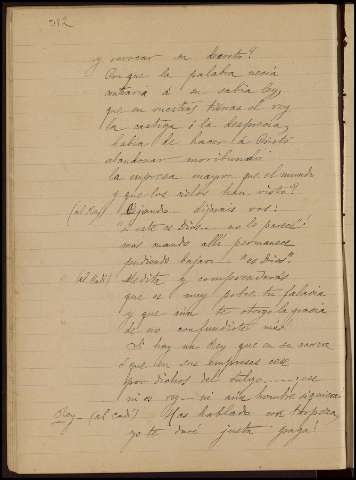 212
y revocar su decreto?
Por que la palabra necia
contraria á su sabia ley,
que en nuestras tierras el rey
la castiga ó la desprecia,
habia de hacer á Cristo
abandonar moribundo
la empresa mayor que el mundo
y que los siglos han visto?
(al Rey) Bajando dijerais vos:
"Si este es Dios... no lo parece!
mas cuando allí permanece
pudiendo bajar... "es Dios".
(al Cadí) Medita y comprenderás
que es muy pobre tu falacia
y que aún te otorgo la gracia
de no confundirte más.
Si hay un Rey que en su carrera
ó que en sus empresas cese
por dichos del vulgo..... ese
ni es rey... ni aun hombre siquiera!
Rey — (al cadí) Has hablado con torpeza,
yo te daré justa paga!